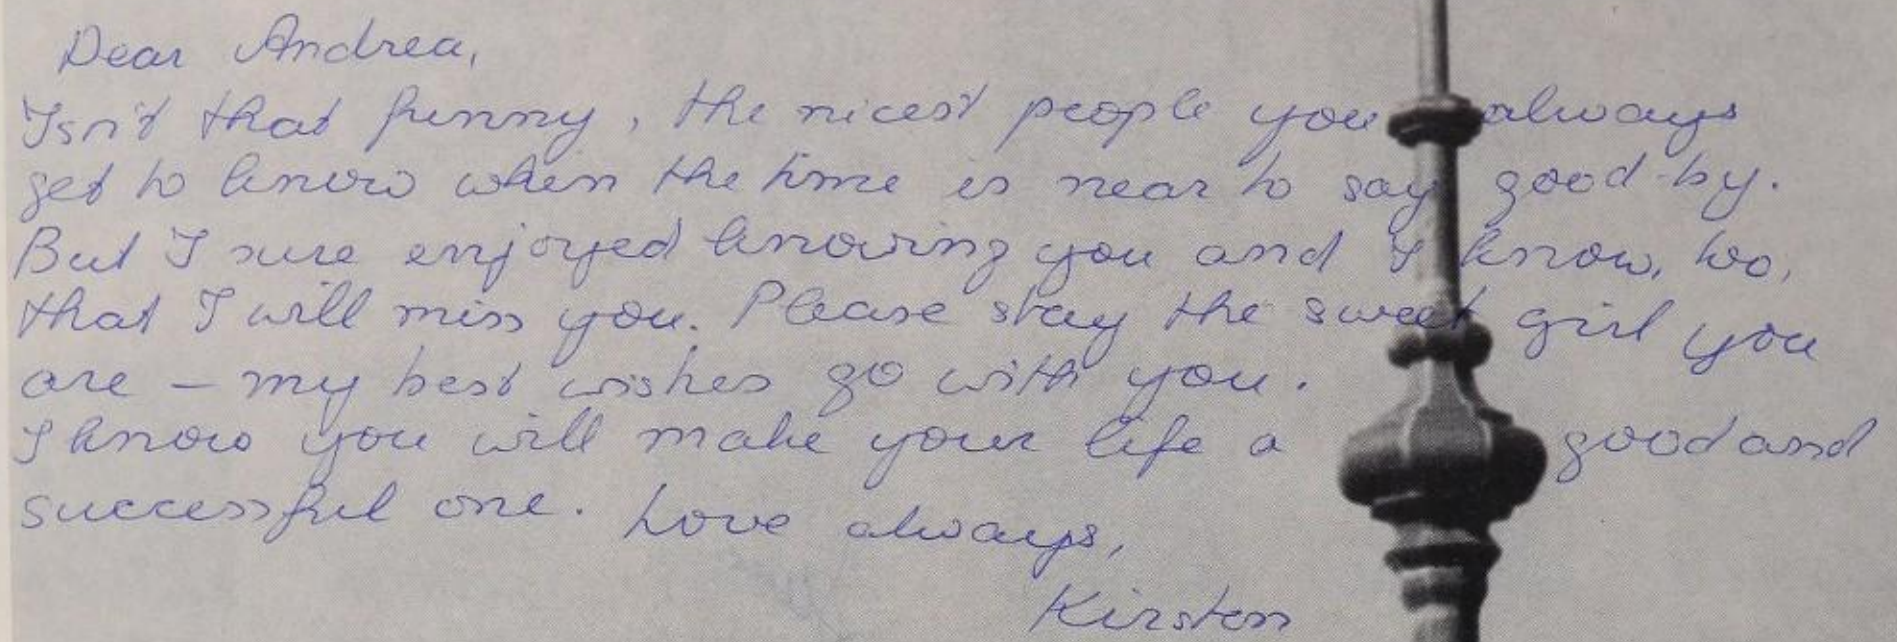 Dear Andrea,
Isn't that funny, the nicest people you always
get to know when the time is near to say good-by.
But I sure enjoyed knowing you and I know, too,
that I will miss you. Please stay the sweet girl you
are – my best wishes go with you.
I know you will make your life a good and
successful one. Love always,
Kirsten